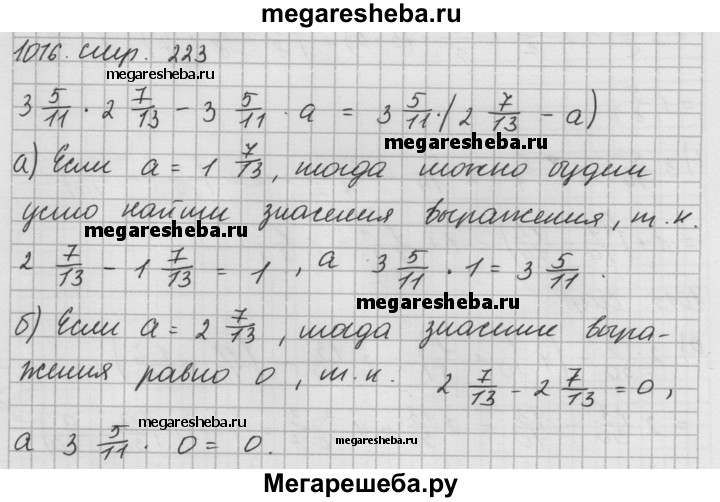 megaresheba.ru
1016. стр. 223
megaresheba.ru
3 5/11 · 2 7/13 − 3 5/11 · a = 3 5/11 · (2 7/13 − a)
megaresheba.ru
а) Если a = 1 7/13, тогда можно будет
устно найти значения выражения, т.к.
megaresheba.ru
2 7/13 − 1 7/13 = 1, а 3 5/11 · 1 = 3 5/11.
megaresheba.ru
б) Если a = 2 7/13, тогда значение выра-
жения равно 0, т.к. 2 7/13 − 2 7/13 = 0,
megaresheba.ru
а 3 5/11 · 0 = 0.
megaresheba.ru
Мегарешеба.ру